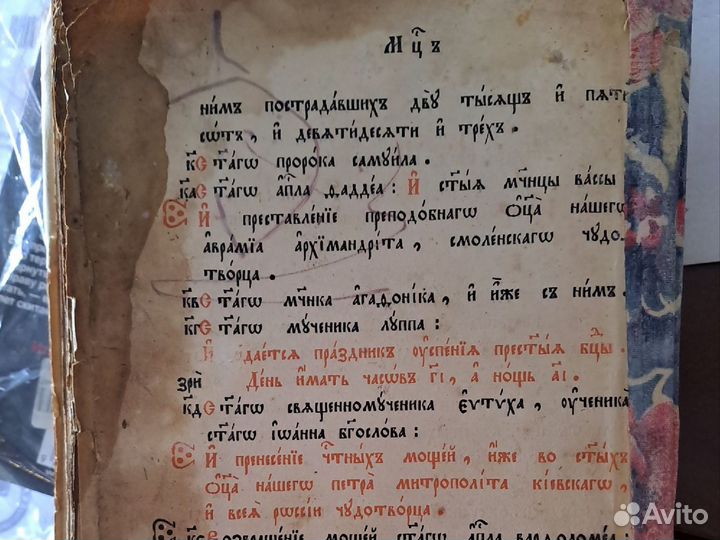 Мцⷭ҇ъ
ни́мъ пострада́вшихъ двꙋ̀ ты́сѧщъ и҆ пѧти
сѡ́тъ , и҆ девѧти́десѧти и҆ тре́хъ .
к҃ Ст҃а́гѡ проро́ка самꙋи́ла .
к҃а Ст҃а́гѡ а҆пⷭ҇ла ѳадде́а : И҆ ст҃ы́ѧ мч҃нцы ва́ссы
И҆ преставле́нїе преподо́бнагѡ ѻ҆ц҃а̀ на́шегѡ
а҆вра́мїа а҆рхїмандрі́та , смоле́нскагѡ чꙋдо
тво́рца .
к҃в Ст҃а́гѡ мч҃нка а҆гаѳоні́ка , и҆ и҆́же съ ни́мъ .
к҃г Ст҃а́гѡ мꙋ́ченика лꙋ́ппа :
И҆ ѿдае́тсѧ пра́здникъ ᲂу҆спе́нїѧ прест҃ы́ѧ бц҃ы .
зрѝ
День и҆́мать часѡ́въ г҃і , а҆ но́щь а҃і .
к҃д Ст҃а́гѡ свѧщенномꙋ́ченика є҆ѵтꙋ́ха , ᲂу҆ченика̀
ст҃а́гѡ і҆ѡа́нна бг҃осло́ва :
И҆ пренесе́нїе чⷭ҇тны́хъ моще́й , и҆́же во ст҃ы́хъ
ѻ҆ц҃а̀ на́шегѡ петра̀ митрополі́та кі́евскагѡ ,
и҆ всеѧ̀ рѡссі́и чꙋдотво́рца .
Возвраще́нїе моще́й ст҃а́гѡ а҆пⷭ҇ла варѳоломе́а :
Avito